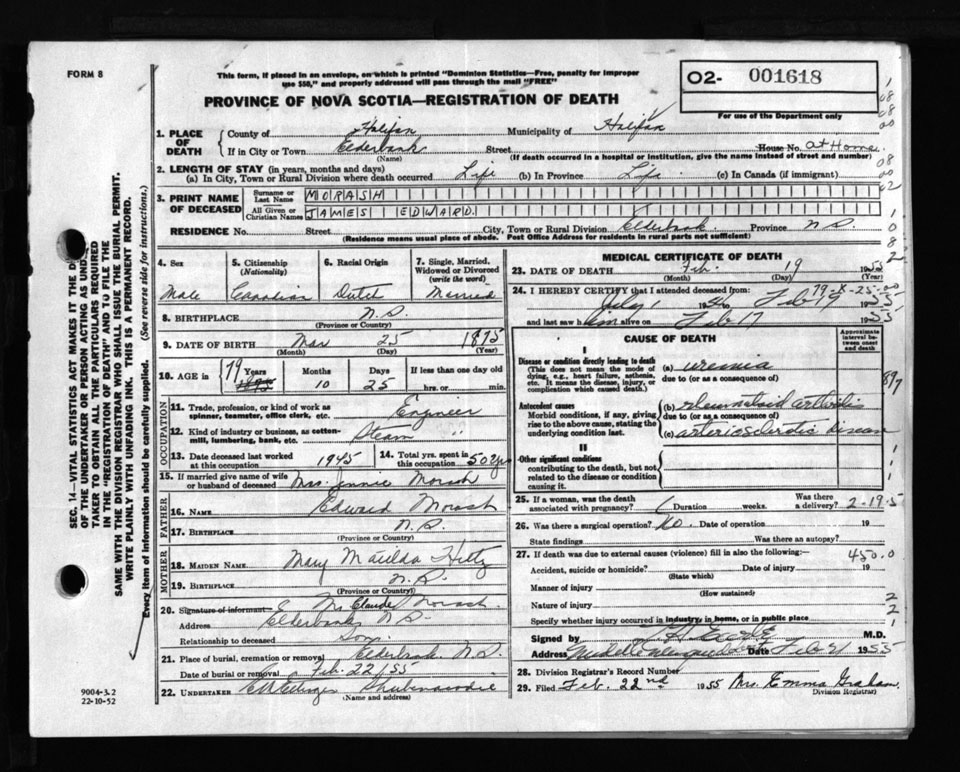 FORM 8
This form, if placed in an envelope, on which is printed "Dominion Statistics—Free, penalty for improper
use $50," and properly addressed will pass through the mail "FREE"
O2- 001618
For use of the Department only
PROVINCE OF NOVA SCOTIA—REGISTRATION OF DEATH
1. PLACE OF DEATH County of Halifax Municipality of Halifax
If in City or Town Elderbank Street House No. at Home
(Name) (If death occurred in a hospital or institution, give the name instead of street and number)
2. LENGTH OF STAY (in years, months and days)
(a) In City, Town or Rural Division where death occurred Life (b) In Province Life (c) In Canada (if immigrant)
3. PRINT NAME OF DECEASED Surname or Last Name MORASH
All Given or Christian Names JAMES EDWARD
RESIDENCE No. Street City, Town or Rural Division Elderbank Province N.S.
(Residence means usual place of abode. Post Office Address for residents in rural parts not sufficient)
4. Sex Male
5. Citizenship (Nationality) Canadian
6. Racial Origin Dutch
7. Single, Married, Widowed or Divorced (write the word) Married
8. BIRTHPLACE N.S.
(Province or Country)
9. DATE OF BIRTH Mar 25 1875
(Month) (Day) (Year)
10. AGE in 79 Years Months 10 Days 25 If less than one day old hrs. or min.
OCCUPATION
11. Trade, profession, or kind of work as spinner, teamster, office clerk, etc. Engineer
12. Kind of industry or business, as cotton-mill, lumbering, bank, etc. Steam "
13. Date deceased last worked at this occupation 1945
14. Total yrs. spent in this occupation 50 yrs
15. If married give name of wife or husband of deceased Mrs. Jennie Morash
FATHER
16. NAME Edward Morash
17. BIRTHPLACE N.S.
(Province or Country)
MOTHER
18. MAIDEN NAME Mary Hiltz
19. BIRTHPLACE N.S.
(Province or Country)
20. Signature of informant Mr Claude Morash
Address Elderbank N.S.
Relationship to deceased Son
21. Place of burial, cremation or removal Elderbank N.S.
Date of burial or removal Feb. 22/55
22. UNDERTAKER Shubenacadie
(Name and address)
MEDICAL CERTIFICATE OF DEATH
23. DATE OF DEATH Feb. 19 1955
(Month) (Day)
79-X-25-00
24. I HEREBY CERTIFY that I attended deceased from:
July 1 1954 to Feb 19 1955
and last saw him alive on Feb 17 1955
CAUSE OF DEATH
Approximate interval between onset and death
I
Disease or condition directly leading to death (a) uremia
(This does not mean the mode of dying, e.g., heart failure, asthenia, etc. It means the disease, injury, or complication which caused death.)
due to (or as a consequence of)
Antecedent causes (b) rheumatoid arthritis
Morbid conditions, if any, giving rise to the above cause, stating the underlying condition last.
due to (or as a consequence of)
(c) arteriosclerotic disease
II
Other significant conditions
contributing to the death, but not related to the disease or condition causing it.
25. If a woman, was the death associated with pregnancy? ( Duration weeks. Was there a delivery? 2-19-5
26. Was there a surgical operation? No. Date of operation 19
State findings Was there an autopsy?
27. If death was due to external causes (violence) fill in also the following:— 450.0
Accident, suicide or homicide? Date of injury 19
(State which)
Manner of injury
(How sustained)
Nature of injury
Specify whether injury occurred in industry, in home, or in public place
Signed by M.D.
Address Date Feb 21 1955
28. Division Registrar's Record Number
29. Filed Feb. 22nd 1955 Mrs. Emma Graham
Division Registrar)
SEC. 14—VITAL STATISTICS ACT MAKES IT THE D
OF THE UNDERTAKER OR PERSON ACTING AS UND
TAKER TO OBTAIN ALL THE PARTICULARS REQUIRED
IN THE "REGISTRATION OF DEATH" AND TO FILE THE
SAME WITH THE DIVISION REGISTRAR WHO SHALL ISSUE THE BURIAL PERMIT.
WRITE PLAINLY WITH UNFADING INK. THIS IS A PERMANENT RECORD.
Every item of information should be carefully supplied. (See reverse side for instructions.)
9004-3.2
22-10-52